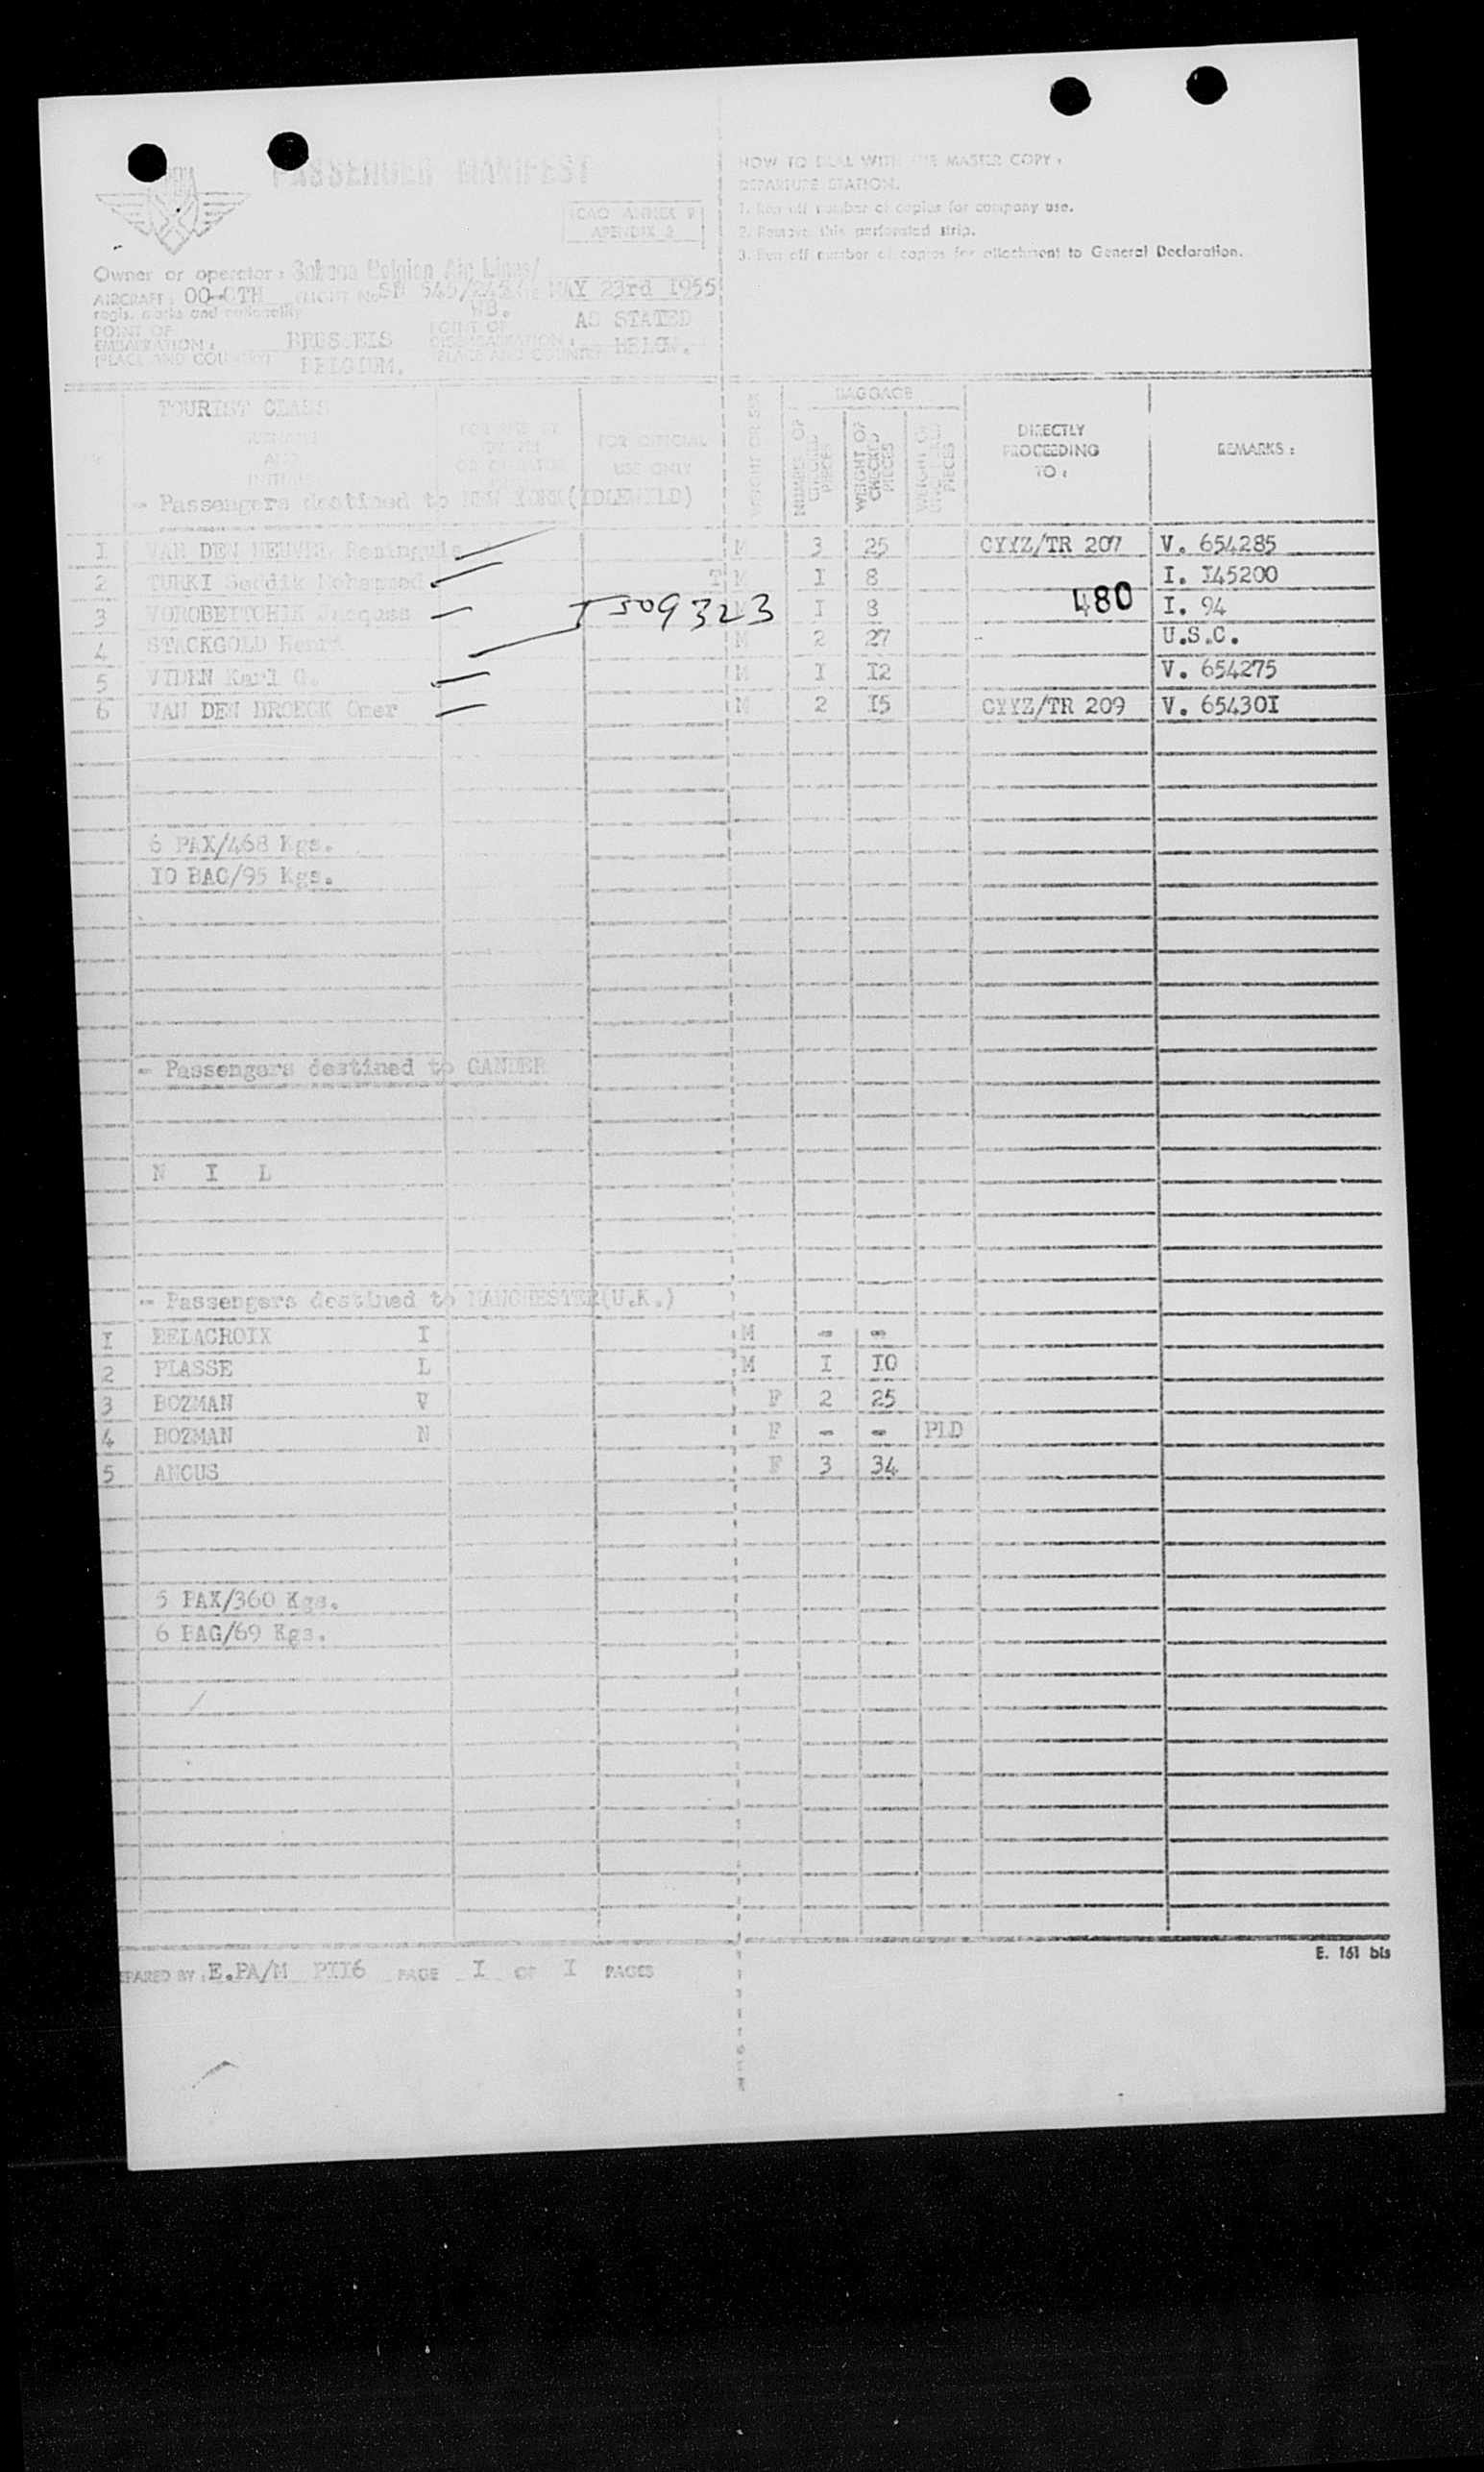 PASSENGER MANIFEST
ICAO ANNEX 9
APENDIX 2
HOW TO DEAL WITH THE MASTER COPY :
DEPARTURE STATION.
1. Run off number of copies for company use.
2. Remove this perforated strip.
3. Run off number of copies for attachment to General Declaration.
Owner or operator : Sabena Belgian Air Lines/
AIRCRAFT : OO-CTH FLIGHT No SN 545/ MAY 23rd 1955
regis. marks and nationality WB.
POINT OF EMBARKATION : BRUSSELS POINT OF DISEMBARKATION : AS STATED
(PLACE AND COUNTRY) BELGIUM. (PLACE AND COUNTRY) BELOW.
TOURIST CLASS
SURNAME AND INITIALS
FOR USE BY OWNER OR OPERATOR ONLY
FOR OFFICIAL USE ONLY
WEIGHT OR SEX
BAGGAGE
NUMBER OF CHECKED PIECES
WEIGHT OF CHECKED PIECES
WEIGHT OF UNCHECKED PIECES
DIRECTLY PROCEEDING TO :
REMARKS :
- Passengers destined to NEW YORK(IDLEWILD)
1 VAN DEN HEUVEL M 3 25 CYYZ/TR 207 V. 654285
2 TURKI Seddik Mohammed T M I 8 I. I45200
3 VOROBEITCHIK Jacques I509323 M I 8 480 I. 94
4 STACKGOLD Henri M 2 27 - U.S.C.
5 VIDEN Karl G. M I I2 V. 654275
6 VAN DEN BROECK Omer M 2 I5 CYYZ/TR 209 V. 65430I
6 PAX/468 Kgs.
IO BAG/95 Kgs.
- Passengers destined to GANDER
N I L
- Passengers destined to MANCHESTER(U.K.)
I DELACROIX I M - -
2 PLASSE L M I IO
3 BOZMAN V F 2 25
4 BOZMAN N F - - PLD
5 ANGUS F 3 34
5 PAX/360 Kgs.
6 BAG/69 Kgs.
E. 161 bis
PREPARED BY : E.PA/M PII6 PAGE I OF I PAGES